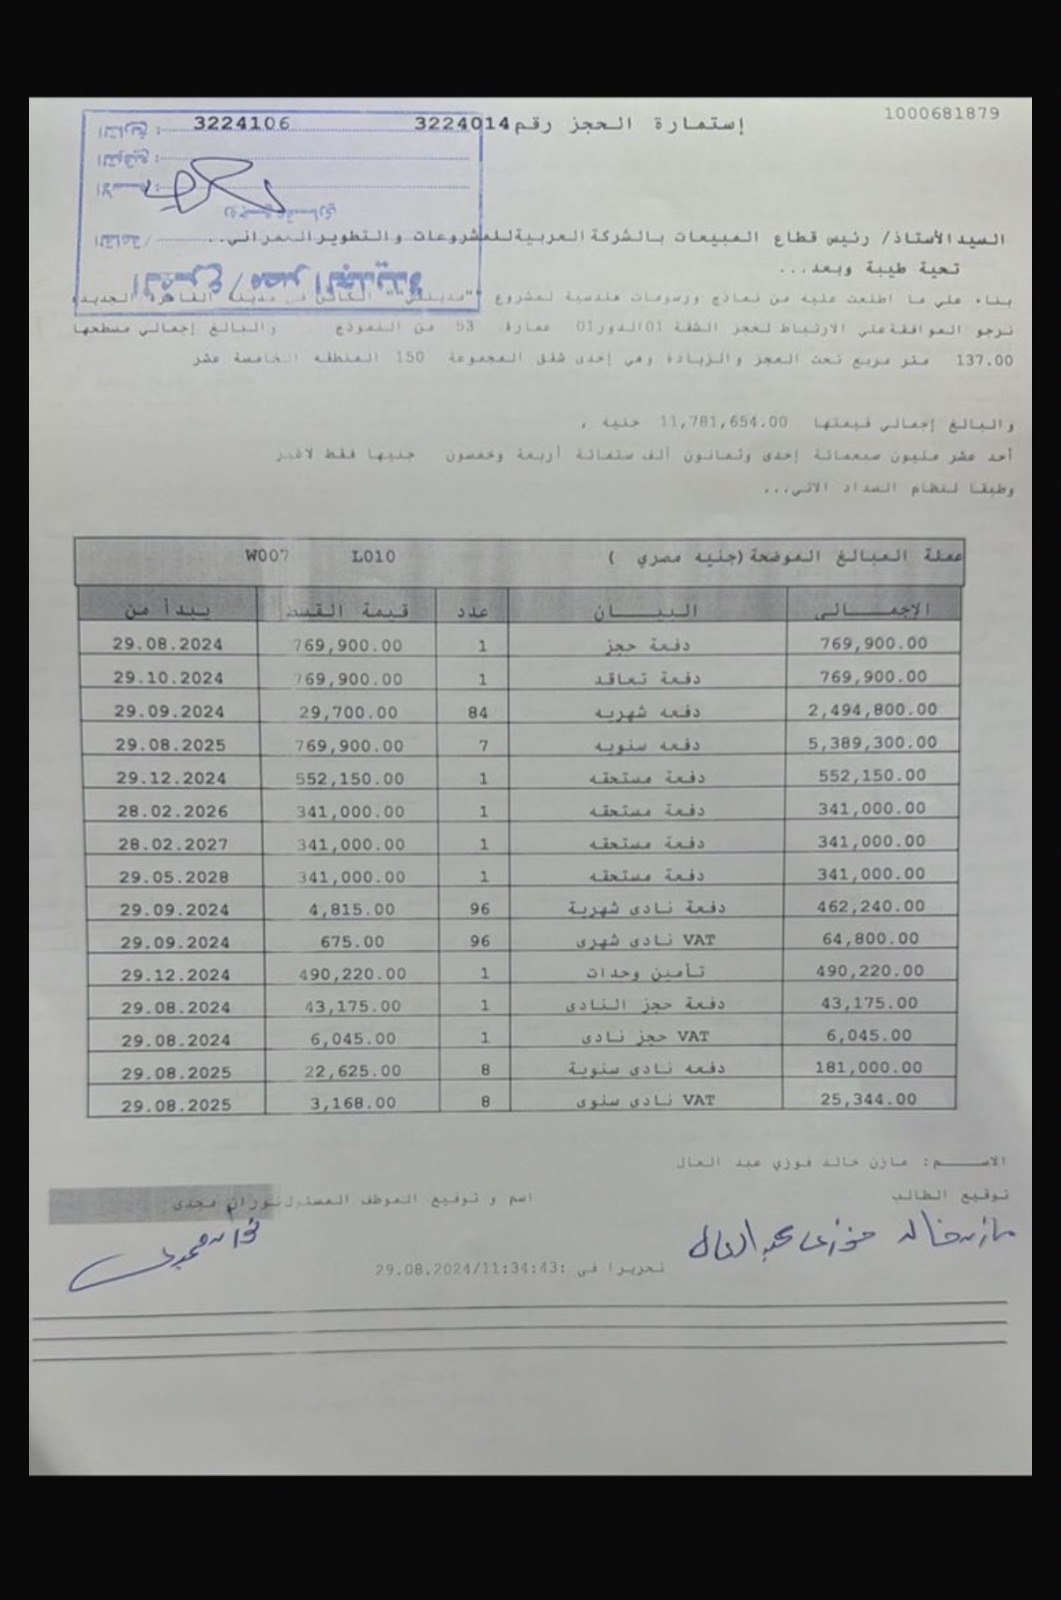 1000681879
إستمارة الحجز رقم 3224014 3224106
التاريخ :
التوقيع :
الاسم :
السيد الأستاذ/ رئيس قطاع المبيعات بالشركة العربية للمشروعات والتطوير العمراني..
الفرع / مصر الجديدة
تحية طيبة وبعد...
بناء علي ما اطلعت عليه من نماذج ورسومات هندسية لمشروع "مدينتي" الكائن في مدينة القاهرة الجديدة
نرجو الموافقة علي الارتباط لحجز الشقة 01 الدور 01 عمارة 53 من النموذج والبالغ إجمالي مسطحها
137.00 متر مربع تحت العجز والزيادة وهي إحدى شقق المجموعة 150 المنطقه الخامسة عشر
والبالغ إجمالي قيمتها 11,781,654.00 جنيه ,
أحد عشر مليون سبعمائة إحدى وثمانون ألف ستمائة أربعة وخمسون جنيها فقط لاغير
وطبقا لنظام السداد الاتي...
عملة المبالغ الموضحة (جنيه مصري ) L010 W007
الإجمـــالى البيـــان عدد قيمة القسط يبدأ من
769,900.00 دفعة حجز 1 769,900.00 29.08.2024
769,900.00 دفعة تعاقد 1 769,900.00 29.10.2024
2,494,800.00 دفعه شهريه 84 29,700.00 29.09.2024
5,389,300.00 دفعه سنويه 7 769,900.00 29.08.2025
552,150.00 دفعة مستحقه 1 552,150.00 29.12.2024
341,000.00 دفعة مستحقه 1 341,000.00 28.02.2026
341,000.00 دفعة مستحقه 1 341,000.00 28.02.2027
341,000.00 دفعة مستحقه 1 341,000.00 29.05.2028
462,240.00 دفعة نادى شهرية 96 4,815.00 29.09.2024
64,800.00 VAT نادى شهرى 96 675.00 29.09.2024
490,220.00 تأمين وحدات 1 490,220.00 29.12.2024
43,175.00 دفعة حجز النادى 1 43,175.00 29.08.2024
6,045.00 VAT حجز نادى 1 6,045.00 29.08.2024
181,000.00 دفعه نادى سنوية 8 22,625.00 29.08.2025
25,344.00 VAT نادى سنوى 8 3,168.00 29.08.2025
الاســـم: مازن خالد فوزي عبد العال
توقيع الطالب اسم و توقيع الموظف المسئول نوران مجدى
مازن خالد فوزى عبد العال نوران مجدى
تحريرا فى :29.08.2024/11:34:43